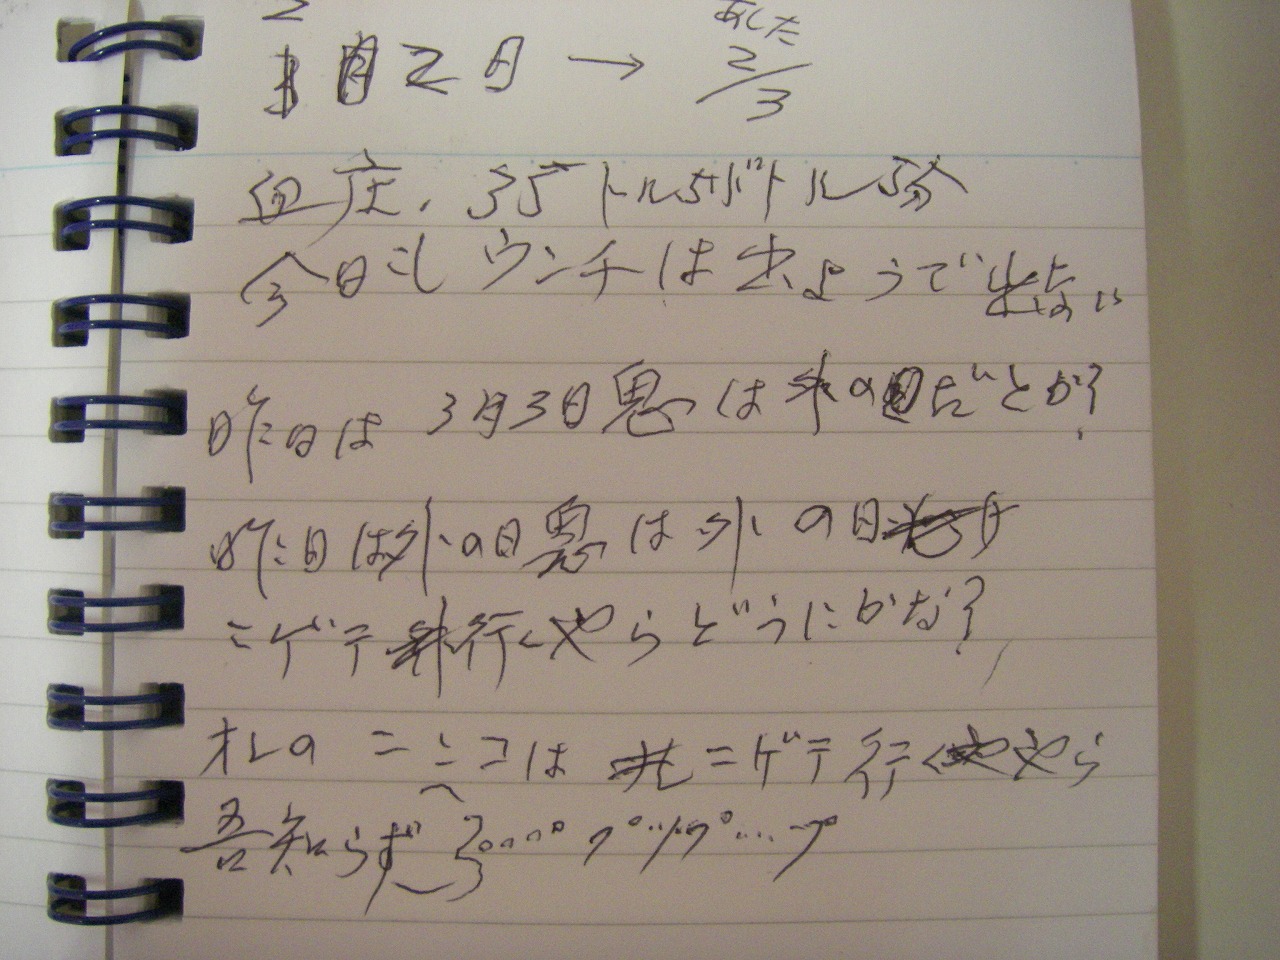 2
2日 → あした 2/3
血圧、35トル
今日もウンチは出ようで出ない
昨日は 3月3日 鬼は外の日だとか?
昨日は外の日 鬼は外の日
ニゲテ行くやらどうにかな?
オレのニンコは ニゲテ行くやら
吾知らず プップ…プ